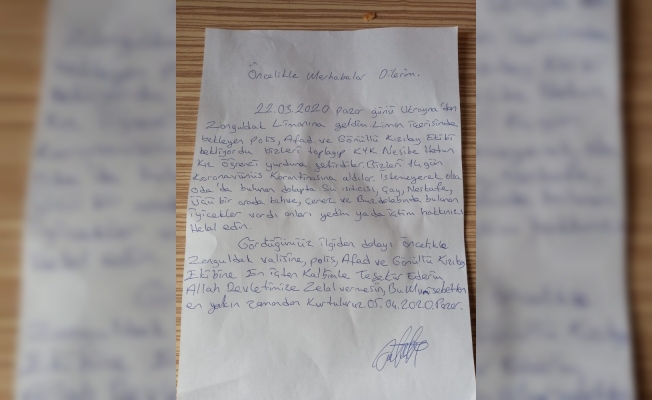 Öncelikle Merhabalar Dilerim.
22.03.2020 Pazar günü Ukrayna'dan
Zonguldak Limanına geldim. Limon içerisinde
bekleyen Polis, Afad ve Gönüllü Kızılay Ekibi
bekliyordu bizleri toplayıp KYK Nesibe Hatun
Kız öğrenci yurduna getirdiler. Bizleri 14 gün
Koronavirüs Karantinasına aldılar. İstemeyerek olsa
oda'da bulunan dolapta Su ısıtıcısı, Çay, Neskafe,
Üçü bir arada kahve, Çerez ve Buzdolabında bulunan
iyicekler vardı onları yedim yada içtim hakkınızı
Helal edin.
Gördüğümüz ilgiden dolayı öncelikle
Zonguldak valisine, polis, Afad ve Gönüllü Kızılay
Ekibine En içten Kalbimle Teşekür Ederim,
Allah Devletimize Zelal vermesin, Bu
en yakın zamandan Kurtuluruz 05.04.2020 Pazar.